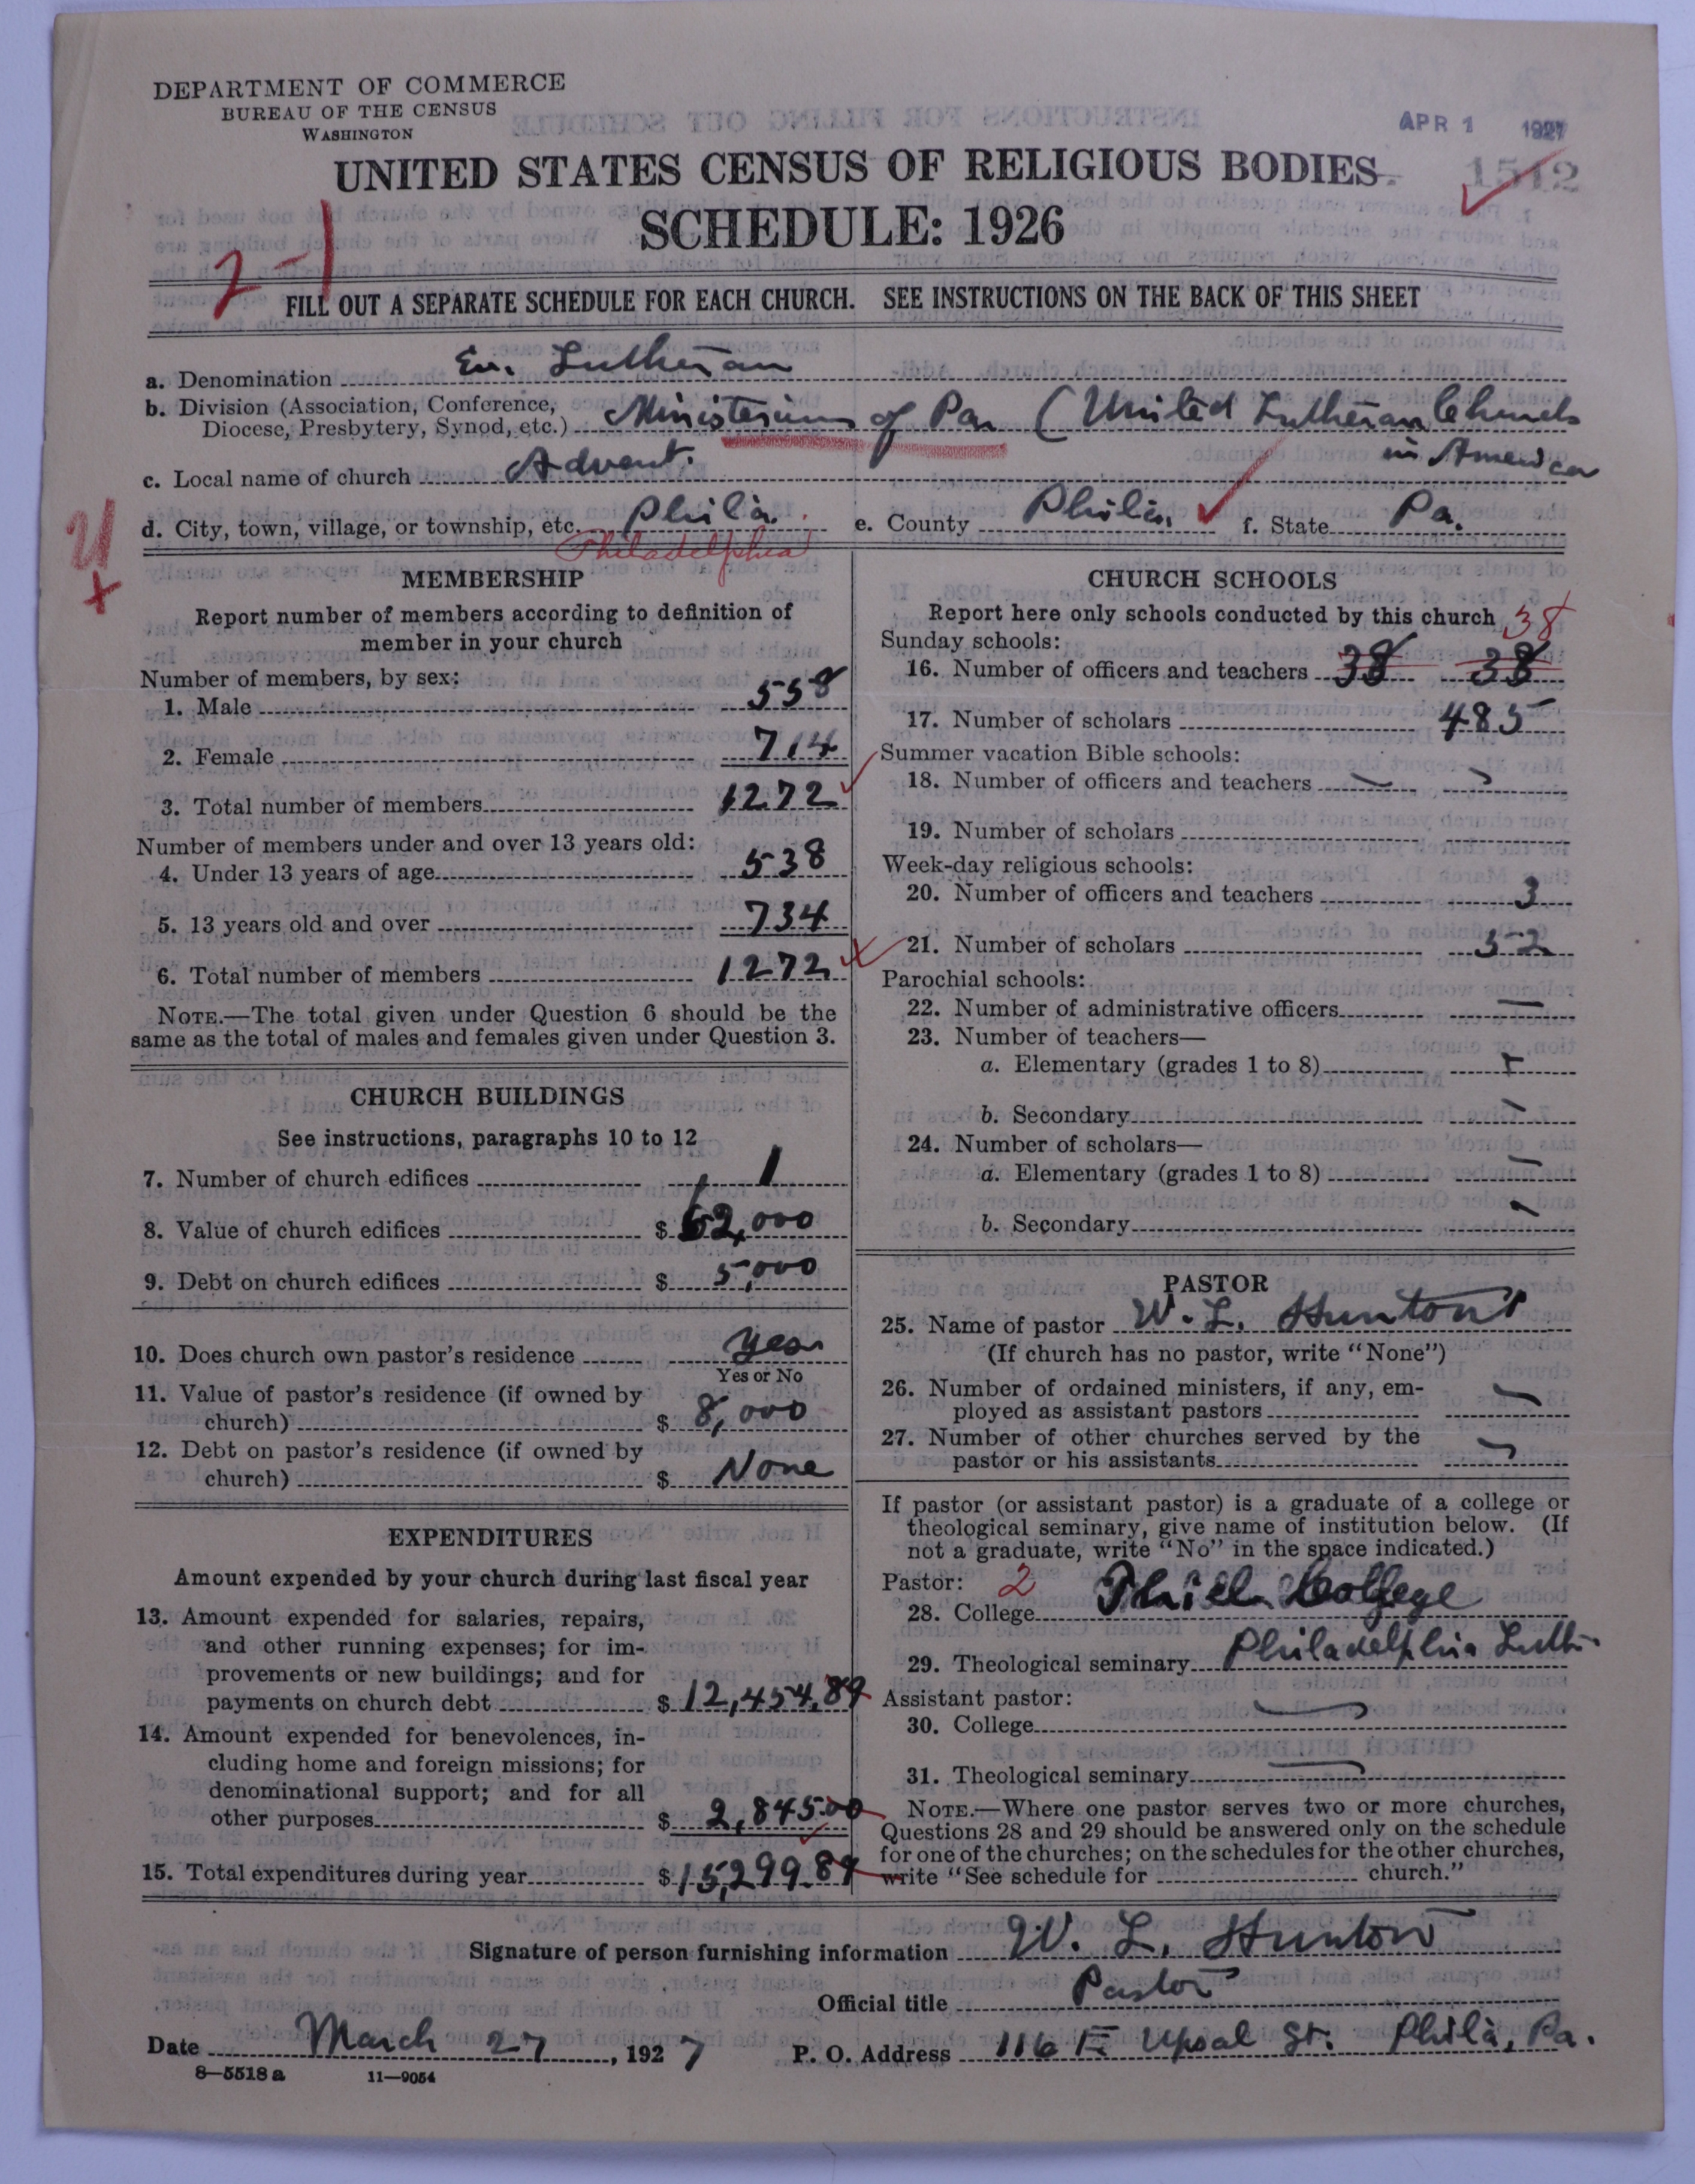 DEPARTMENT OF COMMERCE
BUREAU OF THE CENSUS
WASHINGTON
APR 1 1927
1512
UNITED STATES CENSUS OF RELIGIOUS BODIES
SCHEDULE: 1926
2-1
FILL OUT A SEPARATE SCHEDULE FOR EACH CHURCH. SEE INSTRUCTIONS ON THE BACK OF THIS SHEET
a. Denomination Ev. Lutheran
b. Division (Association, Conference, Diocese, Presbytery, Synod, etc.) Ministerium of Pa. (United Lutheran Church
in America
c. Local name of church Advent.
d. City, town, village, or township, etc. Phila. e. County Phila. f. State Pa.
Philadelphia
MEMBERSHIP
Report number of members according to definition of
member in your church
Number of members, by sex:
1. Male 558
2. Female 714
3. Total number of members 1272
Number of members under and over 13 years old:
4. Under 13 years of age 538
5. 13 years old and over 734
6. Total number of members 1272
NOTE.—The total given under Question 6 should be the
same as the total of males and females given under Question 3.
CHURCH BUILDINGS
See instructions, paragraphs 10 to 12
7. Number of church edifices 1
8. Value of church edifices $ 62,000
9. Debt on church edifices $ 5,000
10. Does church own pastor's residence yes
Yes or No
11. Value of pastor's residence (if owned by
church) $ 8,000
12. Debt on pastor's residence (if owned by
church) $ None
EXPENDITURES
Amount expended by your church during last fiscal year
13. Amount expended for salaries, repairs,
and other running expenses; for im-
provements or new buildings; and for
payments on church debt $ 12,454.89
14. Amount expended for benevolences, in-
cluding home and foreign missions; for
denominational support; and for all
other purposes $ 2,845.00
15. Total expenditures during year $ 15,299.89
CHURCH SCHOOLS
Report here only schools conducted by this church
38
Sunday schools:
16. Number of officers and teachers 38 38
17. Number of scholars 485
Summer vacation Bible schools:
18. Number of officers and teachers
19. Number of scholars
Week-day religious schools:
20. Number of officers and teachers 3
21. Number of scholars 52
Parochial schools:
22. Number of administrative officers —
23. Number of teachers—
a. Elementary (grades 1 to 8) —
b. Secondary —
24. Number of scholars—
a. Elementary (grades 1 to 8) —
b. Secondary —
PASTOR
25. Name of pastor W. L. Hunton
(If church has no pastor, write "None")
26. Number of ordained ministers, if any, em-
ployed as assistant pastors —
27. Number of other churches served by the
pastor or his assistants —
If pastor (or assistant pastor) is a graduate of a college or
theological seminary, give name of institution below. (If
not a graduate, write "No" in the space indicated.)
Pastor: 2
28. College Thiel College
29. Theological seminary Philadelphia Luth.
Assistant pastor:
30. College —
31. Theological seminary —
NOTE.—Where one pastor serves two or more churches,
Questions 28 and 29 should be answered only on the schedule
for one of the churches; on the schedules for the other churches,
write "See schedule for church."
Signature of person furnishing information W. L. Hunton
Official title Pastor
Date March 27, 1927 P. O. Address 116 E Upsal St. Phila, Pa.
8—5518 a 11—9054